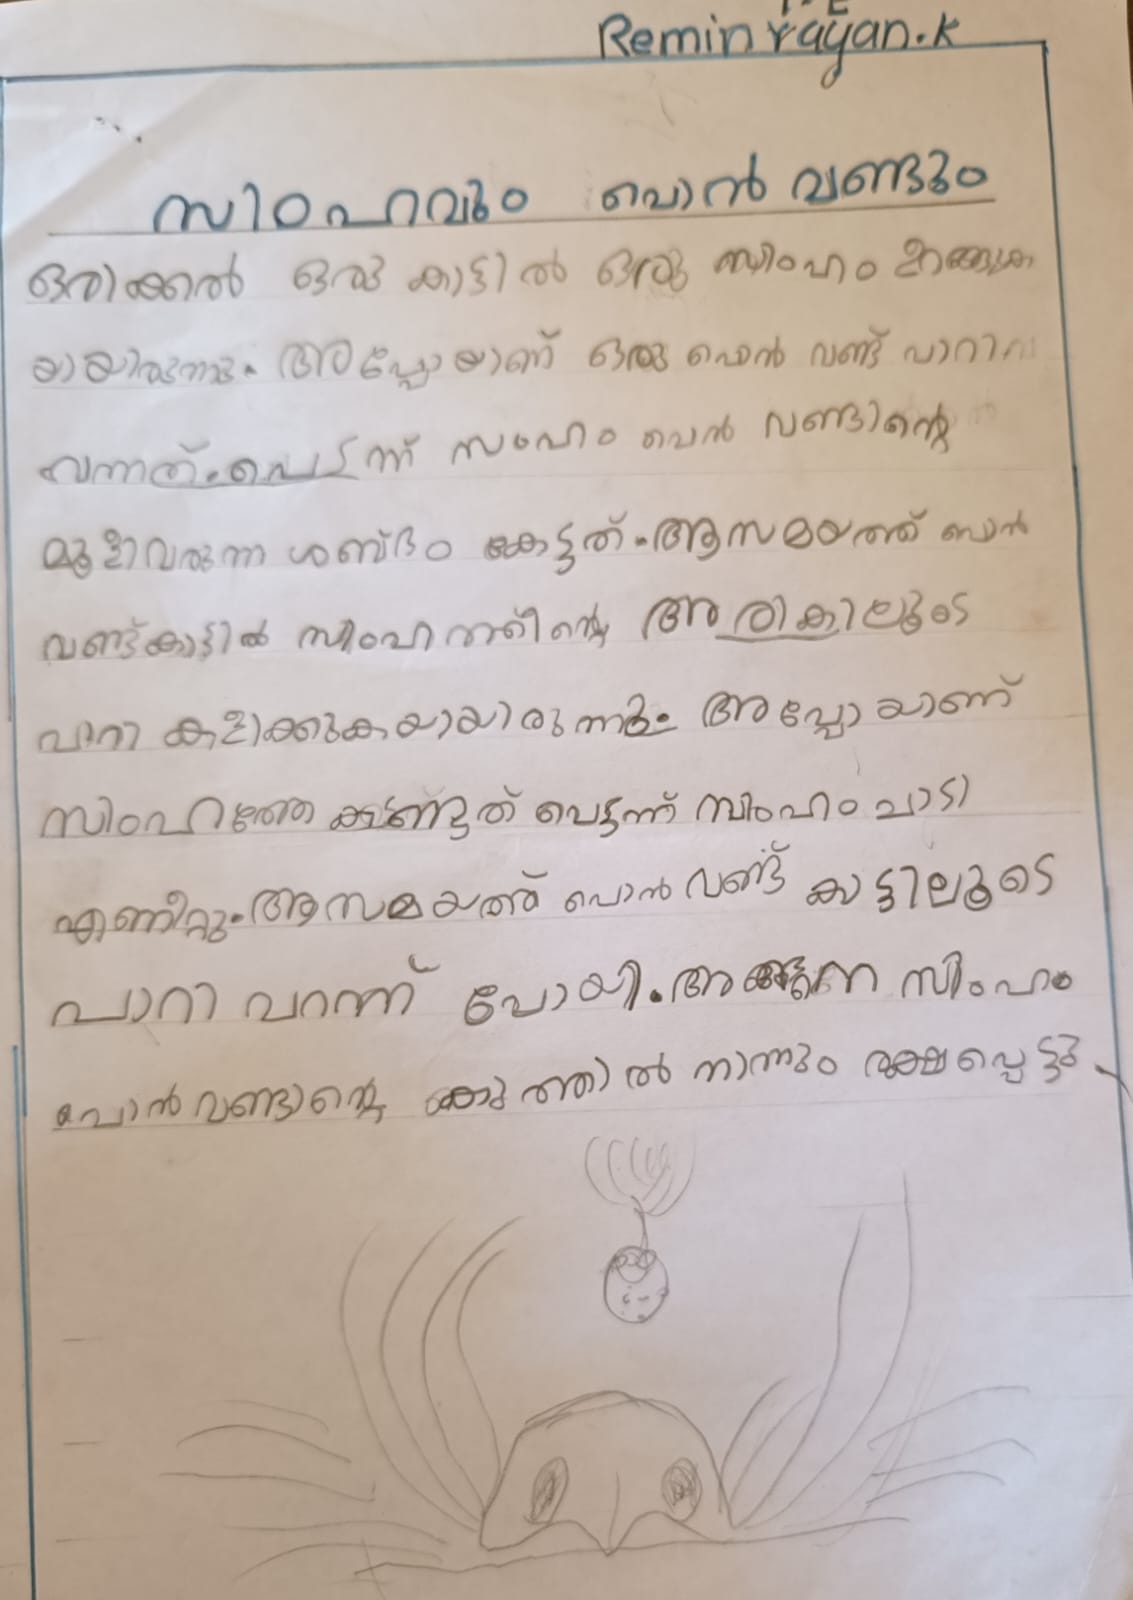 I-E
Reminrayan.k
സിംഹവും പൊൻ വണ്ടും
ഒരിക്കൽ ഒരു കാട്ടിൽ ഒരു സിംഹം
യായിരുന്നു. അപ്പോയാണ് ഒരു പെൻ വണ്ട് പാറി
വന്നത്. പെട്ടന്ന് സംഹം പെൻ വണ്ടിന്റെ
മൂളിവരുന്ന ശബ്ദം കേട്ടത്. ആസമയത്ത് പൊൻ
വണ്ട്കാട്ടിൽ സിംഹത്തിന്റെ അരികിലൂടെ
പാറി കളിക്കുകയായിരുന്നു. അപ്പോയാണ്
സിംഹത്തേ കണ്ടത് പെട്ടന്ന് സിംഹം ചാടി
എണീറ്റു. ആസമയത്ത് പൊൻ വണ്ട് കാട്ടിലൂടെ
പാറി വറന്ന് പോയി. അങ്ങനെ സിംഹം
പൊൻവണ്ടാന്റെ കുത്തിൽ നിന്നും രക്ഷപ്പെട്ടു